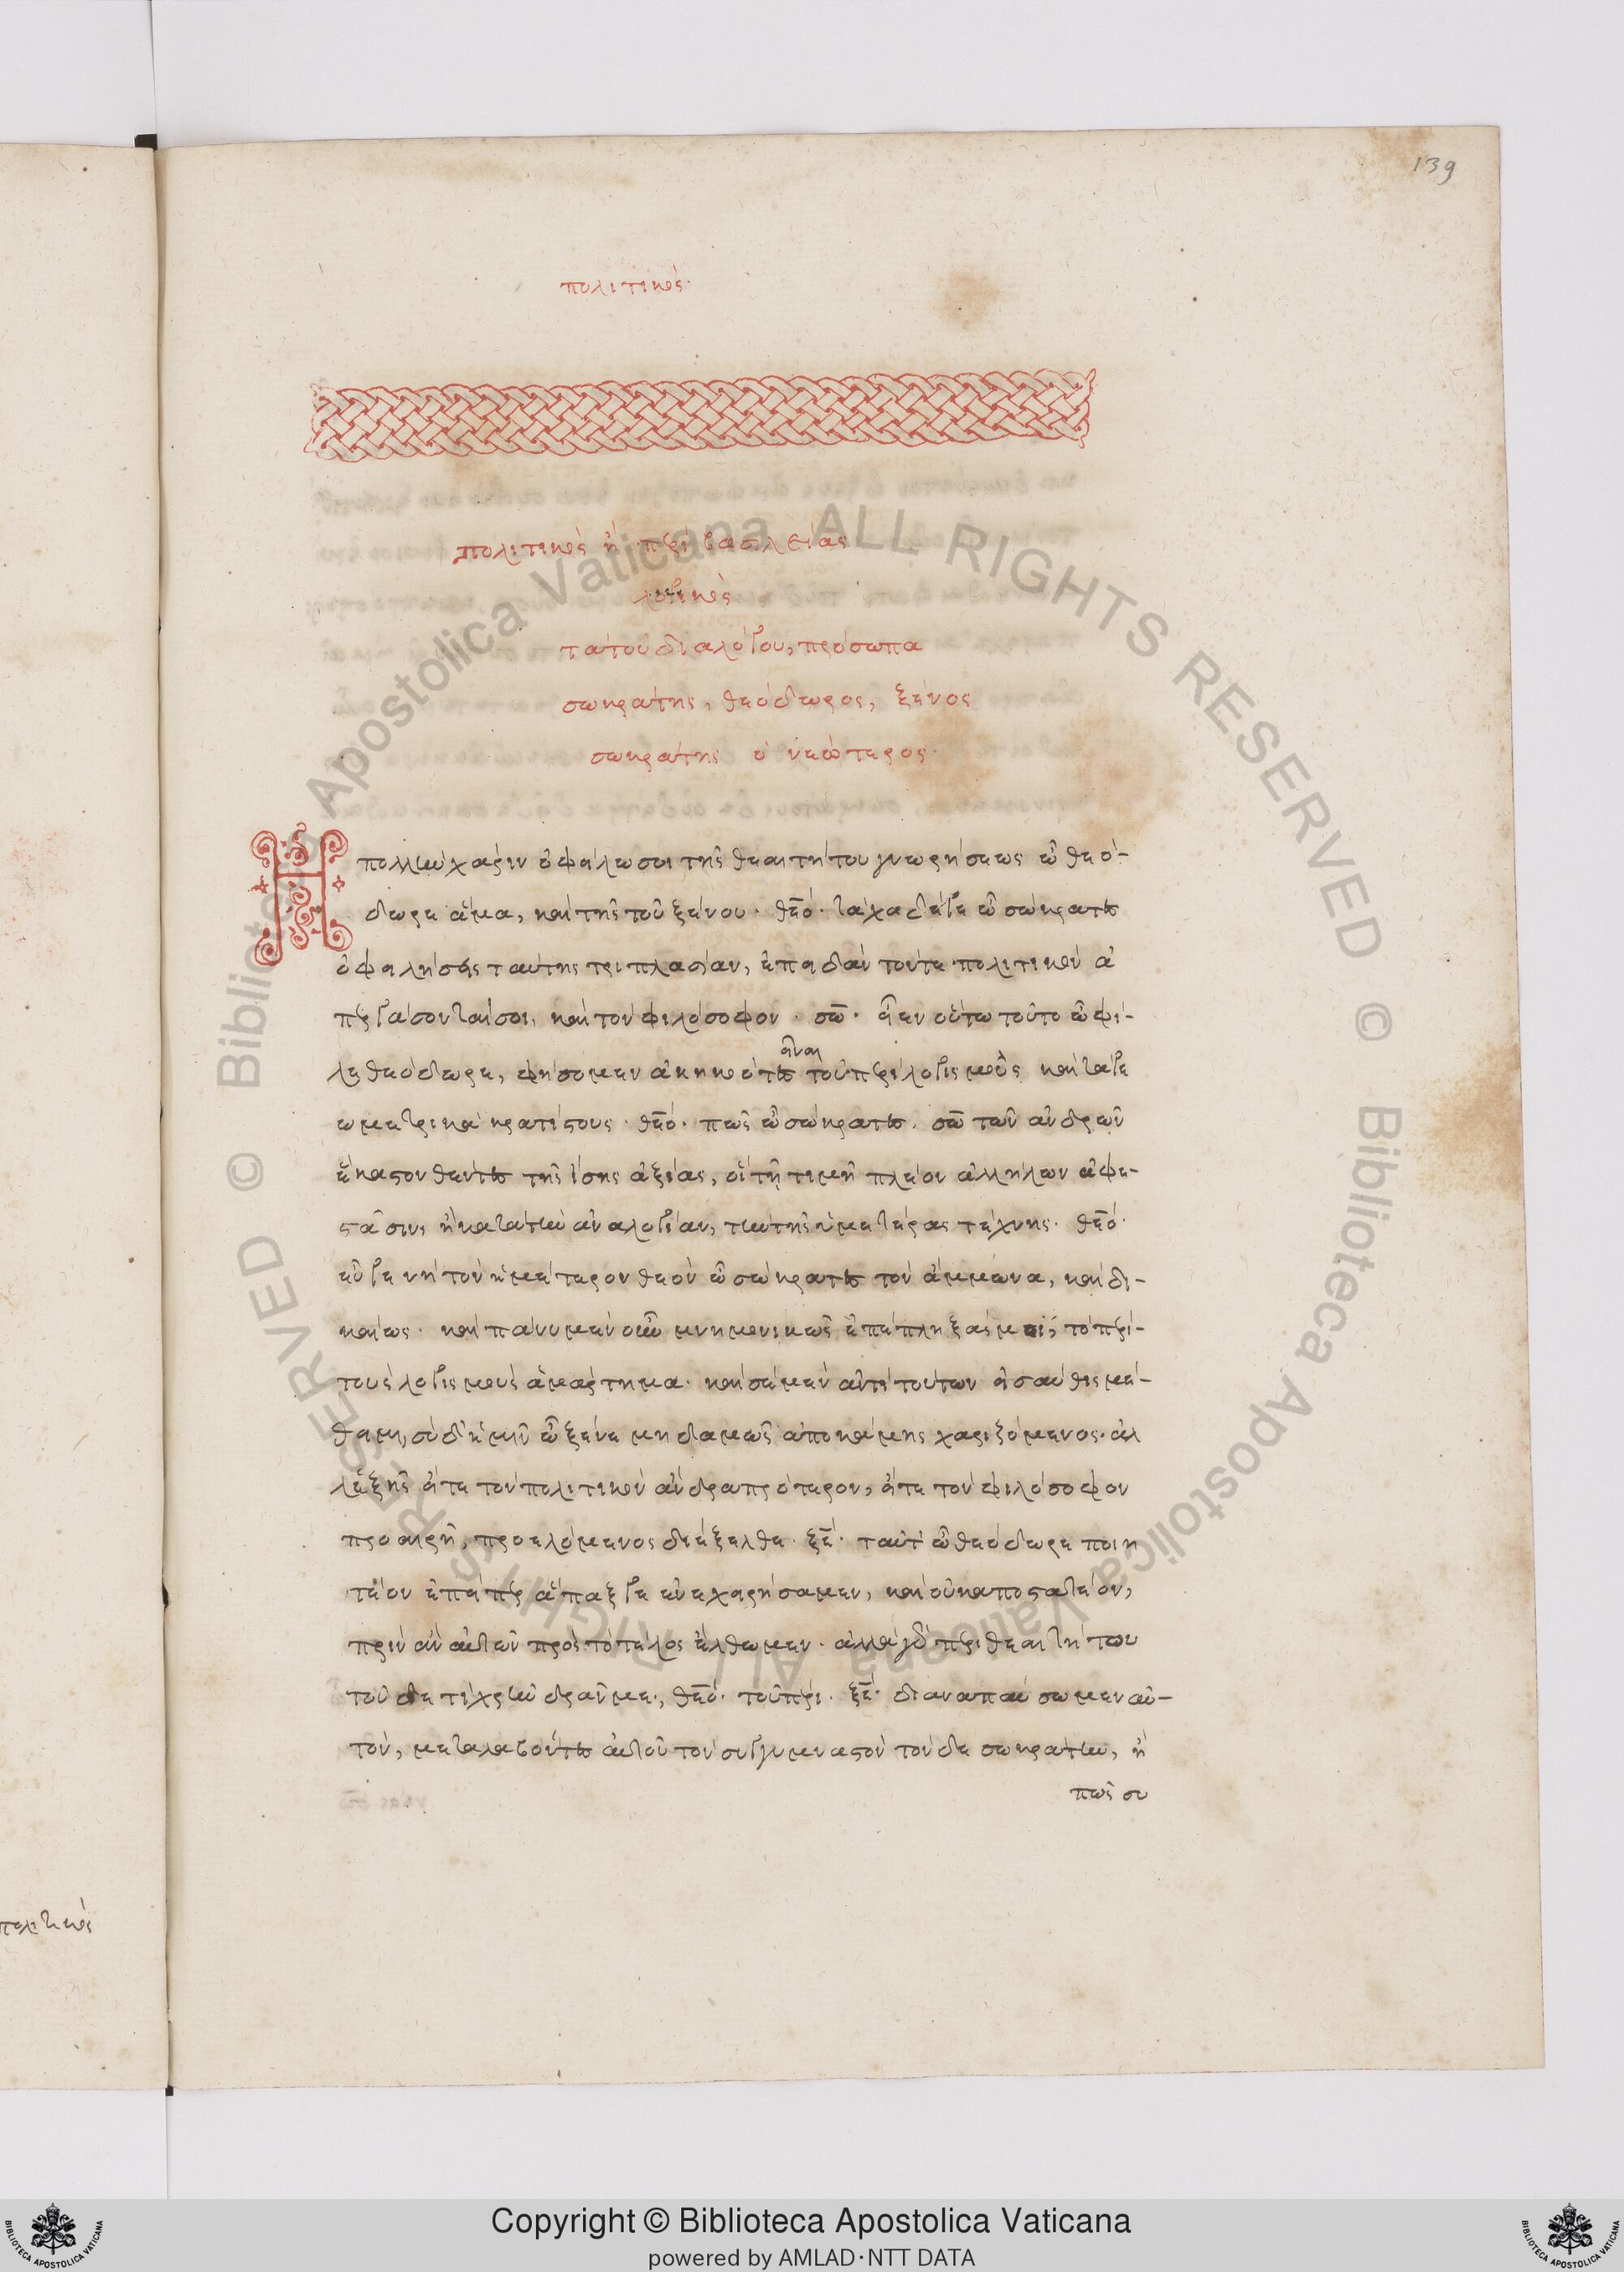 139
πολιτικός·
πολιτικὸς ἢ περὶ βασιλείας
λογικὸς
τὰ τοῦ διαλόγου, πρόσωπα
σωκράτης, θεόδωρος, ξένος
σωκράτης ὁ νεώτερος·
Ἦ πολλὴν χάριν ὀφείλω σοι τῆς θεαιτήτου γνωρήσεως ὦ θεό-
δωρε ἅμα, καὶ τῆς τοῦ ξένου· θεό· τάχα δέ γε ὦ σώκρατες
ὀφειλήσεις ταύτης τριπλασίαν, ἐπειδὰν τόν τε πολιτικὸν ἀ
περγάσωνταί σοι, καὶ τὸν φιλόσοφον· σω· εἶεν οὕτω τοῦτο ὦ φί-
λε θεόδωρε, φήσομεν ἀκηκοότες
εἶναι
τοῦ περὶ λογισμοὺς καὶ τὰ γε
ωμετρικὰ κρατίστους· θεό· πῶς ὦ σώκρατες· σω τῶν ἀνδρῶν
ἕκαστον θέντες τῆς ἴσης ἀξίας, οἳ τῇ τιμῇ πλέον ἀλλήλων ἀφε-
στᾶσιν, ἢ κατὰ τὴν ἀναλογίαν, τὴν τῆς ὑμετέρας τέχνης· θεό·
εὖ γε νὴ τὸν ἡμέτερον θεὸν ὦ σώκρατες τὸν ἄμμωνα, καὶ δι-
καίως· καὶ πάνυ μὲν οὖν μνημονικῶς ἐπέπληξάς μοι, τὸ περὶ
τοὺς λογισμοὺς ἁμάρτημα· καὶ σὲ μὲν ἀντὶ τούτων εἰσαῦθις μέ-
τειμι, σὺ δ' ἡμῖν ὦ ξένε μηδαμῶς ἀποκάμῃς χαριζόμενος· ἀλ
λ' ἑξῆς εἴτε τὸν πολιτικὸν ἄνδρα πρότερον, εἴτε τὸν φιλόσοφον
προαιρῇ, προελόμενος διέξελθε· ξέ· ταῦτ' ὦ θεόδωρε ποιη
τέον ἐπείπερ ἅπαξ γε ἐνεχειρήσαμεν, καὶ οὐκ ἀποστατέον,
πρὶν ἂν αὐτῶν πρὸς τὸ τέλος ἔλθωμεν· ἀλλὰ γὰρ περὶ θεαιτήτου
τοῦδε τί χρὴ δρᾶν με, θεό· τοῦ περι· ξέ· διαναπαύσωμεν αὐ-
τόν, μεταλαβόντες αὐτοῦ τὸν συγγυμναστὴν τόνδε σωκράτην, ἢ
πῶς συ
πολιτικὸς
Copyright © Biblioteca Apostolica Vaticana
powered by AMLAD·NTT DATA
© Biblioteca Apostolica Vaticana ALL RIGHTS RESERVED © Biblioteca Apostolica Vaticana ALL RIGHTS RESERVED
BIBLIOTECA APOSTOLICA VATICANA
BIBLIOTECA APOSTOLICA VATICANA